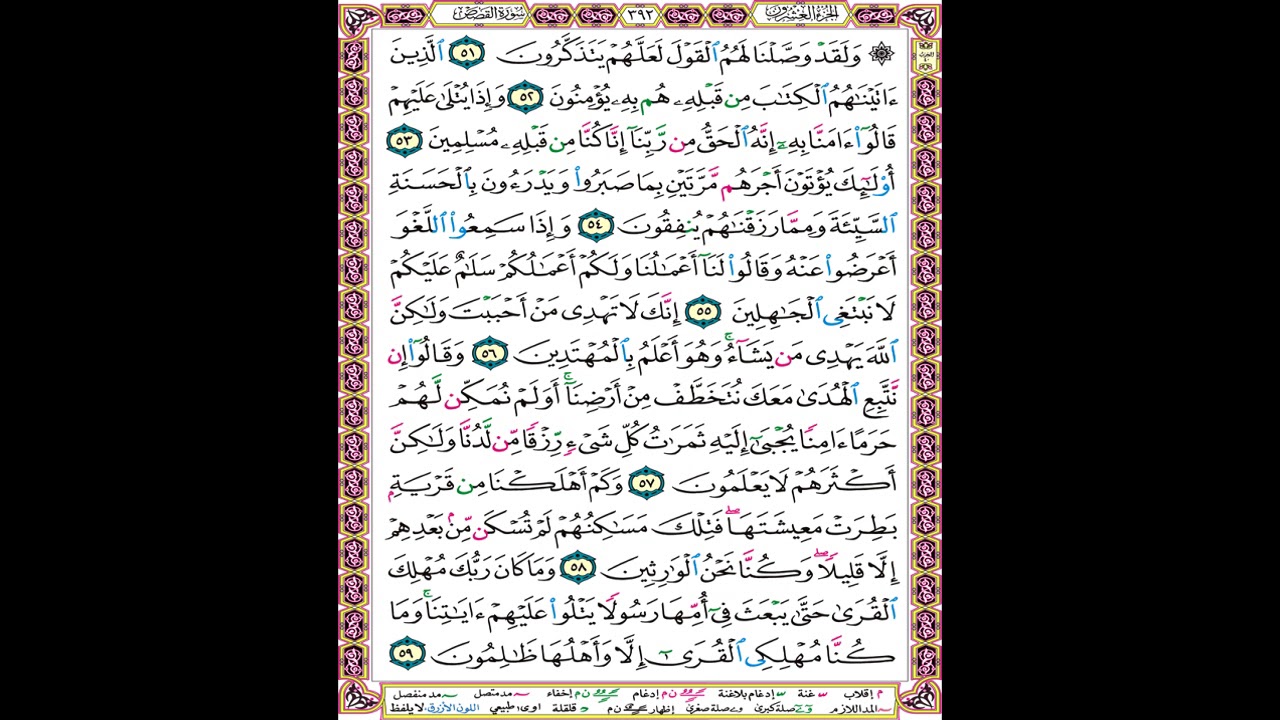 سورة القصص ٣٩٢ الجزء العشرون
الحزب ٤٠
۞ وَلَقَدْ وَصَّلْنَا لَهُمُ ٱلْقَوْلَ لَعَلَّهُمْ يَتَذَكَّرُونَ ٥١ ٱلَّذِينَ
ءَاتَيْنَٰهُمُ ٱلْكِتَٰبَ مِن قَبْلِهِۦ هُم بِهِۦ يُؤْمِنُونَ ٥٢ وَإِذَا يُتْلَىٰ عَلَيْهِمْ
قَالُوٓا۟ ءَامَنَّا بِهِۦٓ إِنَّهُ ٱلْحَقُّ مِن رَّبِّنَآ إِنَّا كُنَّا مِن قَبْلِهِۦ مُسْلِمِينَ ٥٣
أُو۟لَٰٓئِكَ يُؤْتَوْنَ أَجْرَهُم مَّرَّتَيْنِ بِمَا صَبَرُوا۟ وَيَدْرَءُونَ بِٱلْحَسَنَةِ
ٱلسَّيِّئَةَ وَمِمَّا رَزَقْنَٰهُمْ يُنفِقُونَ ٥٤ وَإِذَا سَمِعُوا۟ ٱللَّغْوَ
أَعْرَضُوا۟ عَنْهُ وَقَالُوا۟ لَنَآ أَعْمَٰلُنَا وَلَكُمْ أَعْمَٰلُكُمْ سَلَٰمٌ عَلَيْكُمْ
لَا نَبْتَغِى ٱلْجَٰهِلِينَ ٥٥ إِنَّكَ لَا تَهْدِى مَنْ أَحْبَبْتَ وَلَٰكِنَّ
ٱللَّهَ يَهْدِى مَن يَشَآءُ ۚ وَهُوَ أَعْلَمُ بِٱلْمُهْتَدِينَ ٥٦ وَقَالُوٓا۟ إِن
نَّتَّبِعِ ٱلْهُدَىٰ مَعَكَ نُتَخَطَّفْ مِنْ أَرْضِنَآ ۚ أَوَلَمْ نُمَكِّن لَّهُمْ
حَرَمًا ءَامِنًا يُجْبَىٰٓ إِلَيْهِ ثَمَرَٰتُ كُلِّ شَىْءٍ رِّزْقًا مِّن لَّدُنَّا وَلَٰكِنَّ
أَكْثَرَهُمْ لَا يَعْلَمُونَ ٥٧ وَكَمْ أَهْلَكْنَا مِن قَرْيَةٍۭ
بَطِرَتْ مَعِيشَتَهَا ۖ فَتِلْكَ مَسَٰكِنُهُمْ لَمْ تُسْكَن مِّنۢ بَعْدِهِمْ
إِلَّا قَلِيلًا ۖ وَكُنَّا نَحْنُ ٱلْوَٰرِثِينَ ٥٨ وَمَا كَانَ رَبُّكَ مُهْلِكَ
ٱلْقُرَىٰ حَتَّىٰ يَبْعَثَ فِىٓ أُمِّهَا رَسُولًا يَتْلُوا۟ عَلَيْهِمْ ءَايَٰتِنَا ۚ وَمَا
كُنَّا مُهْلِكِى ٱلْقُرَىٰٓ إِلَّا وَأَهْلُهَا ظَٰلِمُونَ ٥٩
م إقلاب س غنة س إدغام بلاغنة ن م إدغام ن م إخفاء مد متصل مد منفصل
المد اللازم صلة كبرى و ے صلة صغرى إظهار ن م د قلقلة اوى؛ طبيعي اللون الأزرق لا يلفظ